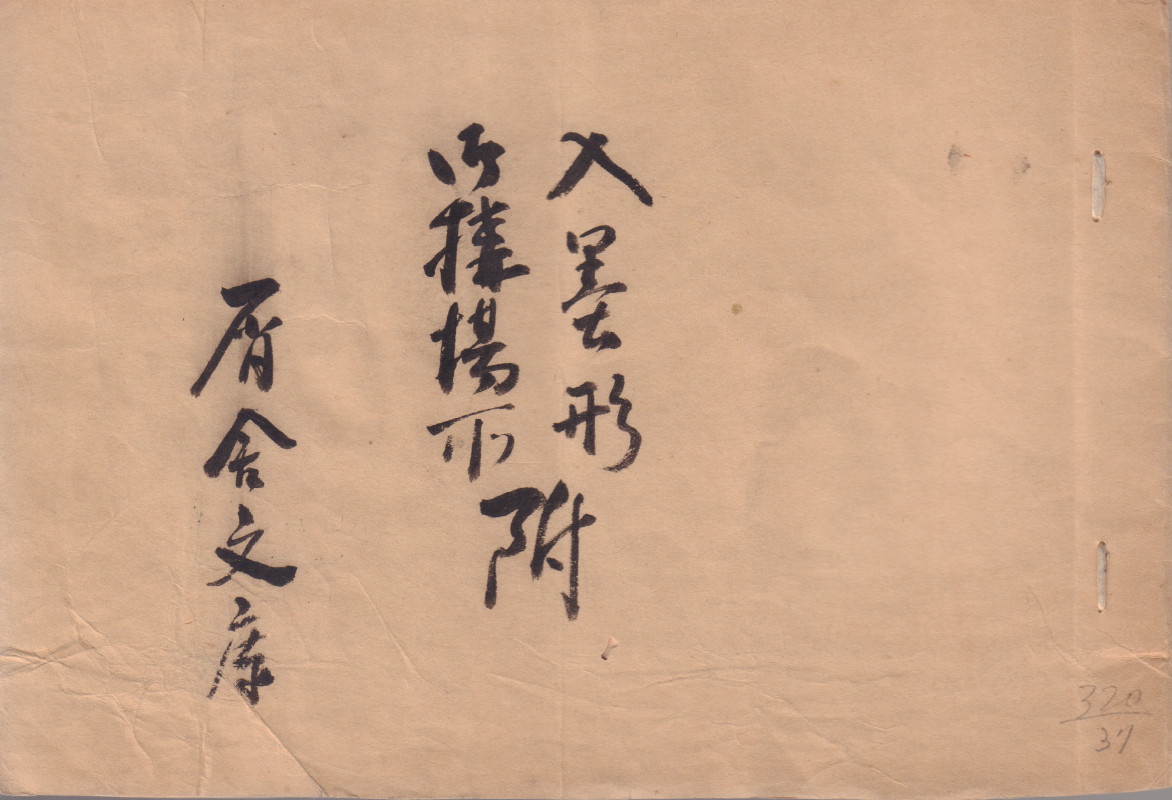 入墨形
御様場所
附
屑舎文庫
320
37